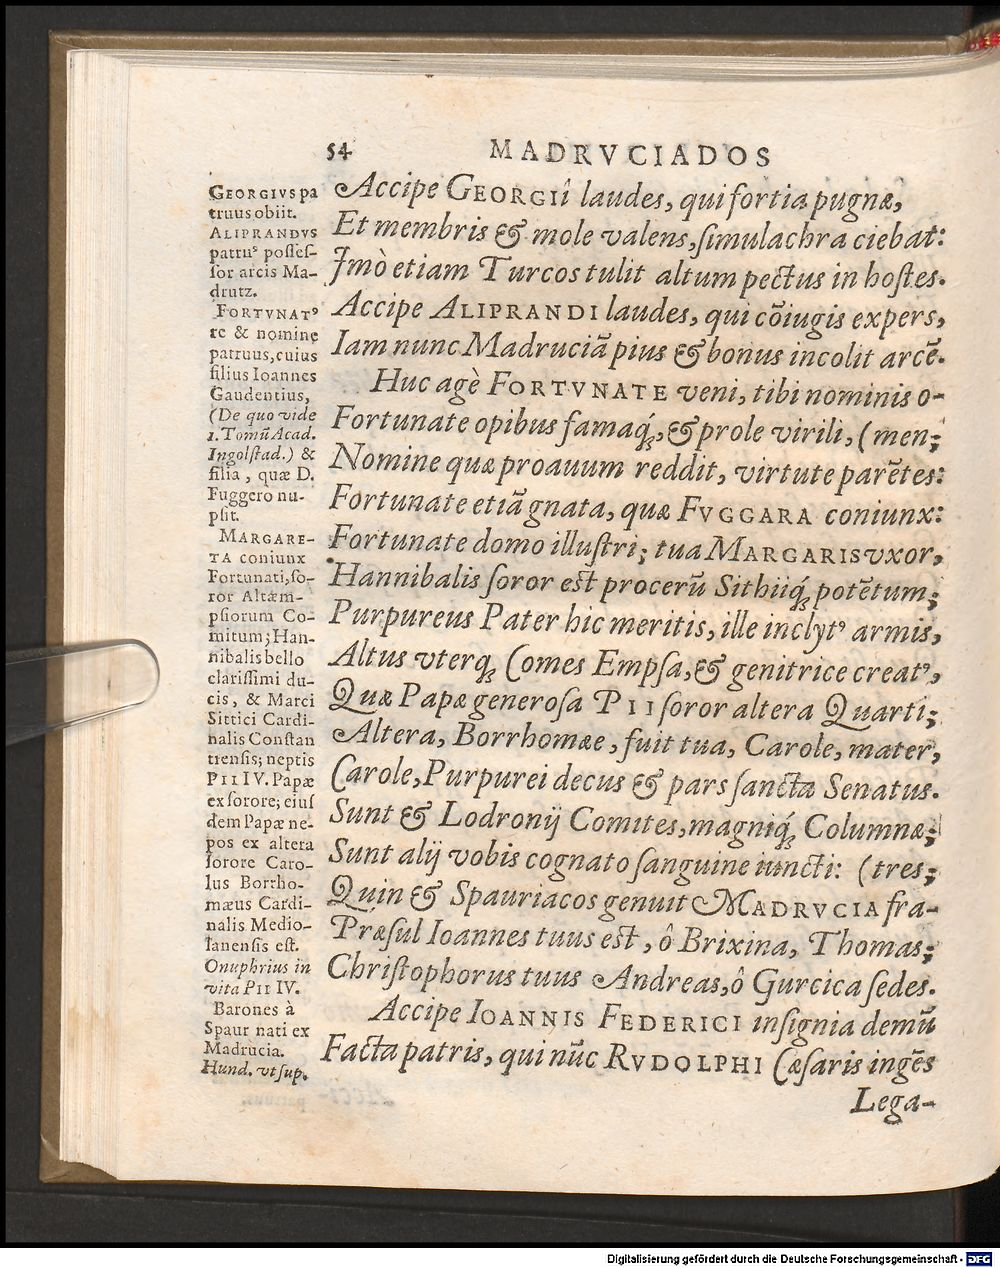 54
MADRVCIADOS
GEORGIVS pa
truus obiit.
ALIPRANDVS
patruꝰ posses-
sor arcis Ma-
drutz.
FORTVNATꝰ
re & nomine
patruus, cuius
filius Ioannes
Gaudentius,
(De quo vide
1. Tomũ Acad.
Ingolstad.) &
filia, quæ D.
Fuggero nu-
psit.
MARGARE-
TA coniunx
Fortunati, so-
ror Altæm-
psiorum Co-
mitum; Han-
nibalis bello
clarissimi du-
cis, & Marci
Sittici Cardi-
nalis Constan
tiensis; neptis
PII IV. Papæ
ex sorore; eius
dem Papæ ne-
pos ex altera
sorore Caro-
lus Borrho-
mæus Cardi-
nalis Medio-
lanensis est.
Onuphrius in
vita PII IV.
Barones à
Spaur nati ex
Madrucia.
Hund. vt sup.
Accipe GEORGII̊ laudes, qui fortia pugnæ,
Et membris & mole valens, simulachra ciebat:
Imò etiam Turcos tulit altum pectus in hostes.
Accipe ALIPRANDI laudes, qui cõiugis expers,
Iam nunc Madruciã pius & bonus incolit arcẽ.
Huc agè FORTVNATE veni, tibi nominis o-
Fortunate opibus famaq́ꝫ, & prole virili, (men;
Nomine quæ proauum reddit, virtute parẽtes:
Fortunate etiã gnata, quæ FVGGARA coniunx:
Fortunate domo illustri; tua MARGARIS vxor,
Hannibalis soror est procerũ Sithiiq́ꝫ potẽtum;
Purpureus Pater hic meritis, ille inclytꝰ armis,
Altus vterqꝫ Comes Empsa, & genitrice creatꝰ,
Quæ Papæ generosa PII soror altera Quarti;
Altera, Borrhomæe, fuit tua, Carole, mater,
Carole, Purpurei decus & pars sancta Senatus.
Sunt & Lodronij Comites, magniq́ꝫ Columnæ;
Sunt alij vobis cognato sanguine iuncti: (tres;
Quin & Spauriacos genuit MADRVCIA fra-
Præsul Ioannes tuus est, ô Brixina, Thomas;
Christophorus tuus Andreas, ô Gurcica sedes.
Accipe IOANNIS FEDERICI insignia demũ
Facta patris, qui nũc RVDOLPHI Cæsaris ingẽs
Lega-
Digitalisierung gefördert durch die Deutsche Forschungsgemeinschaft - DFG